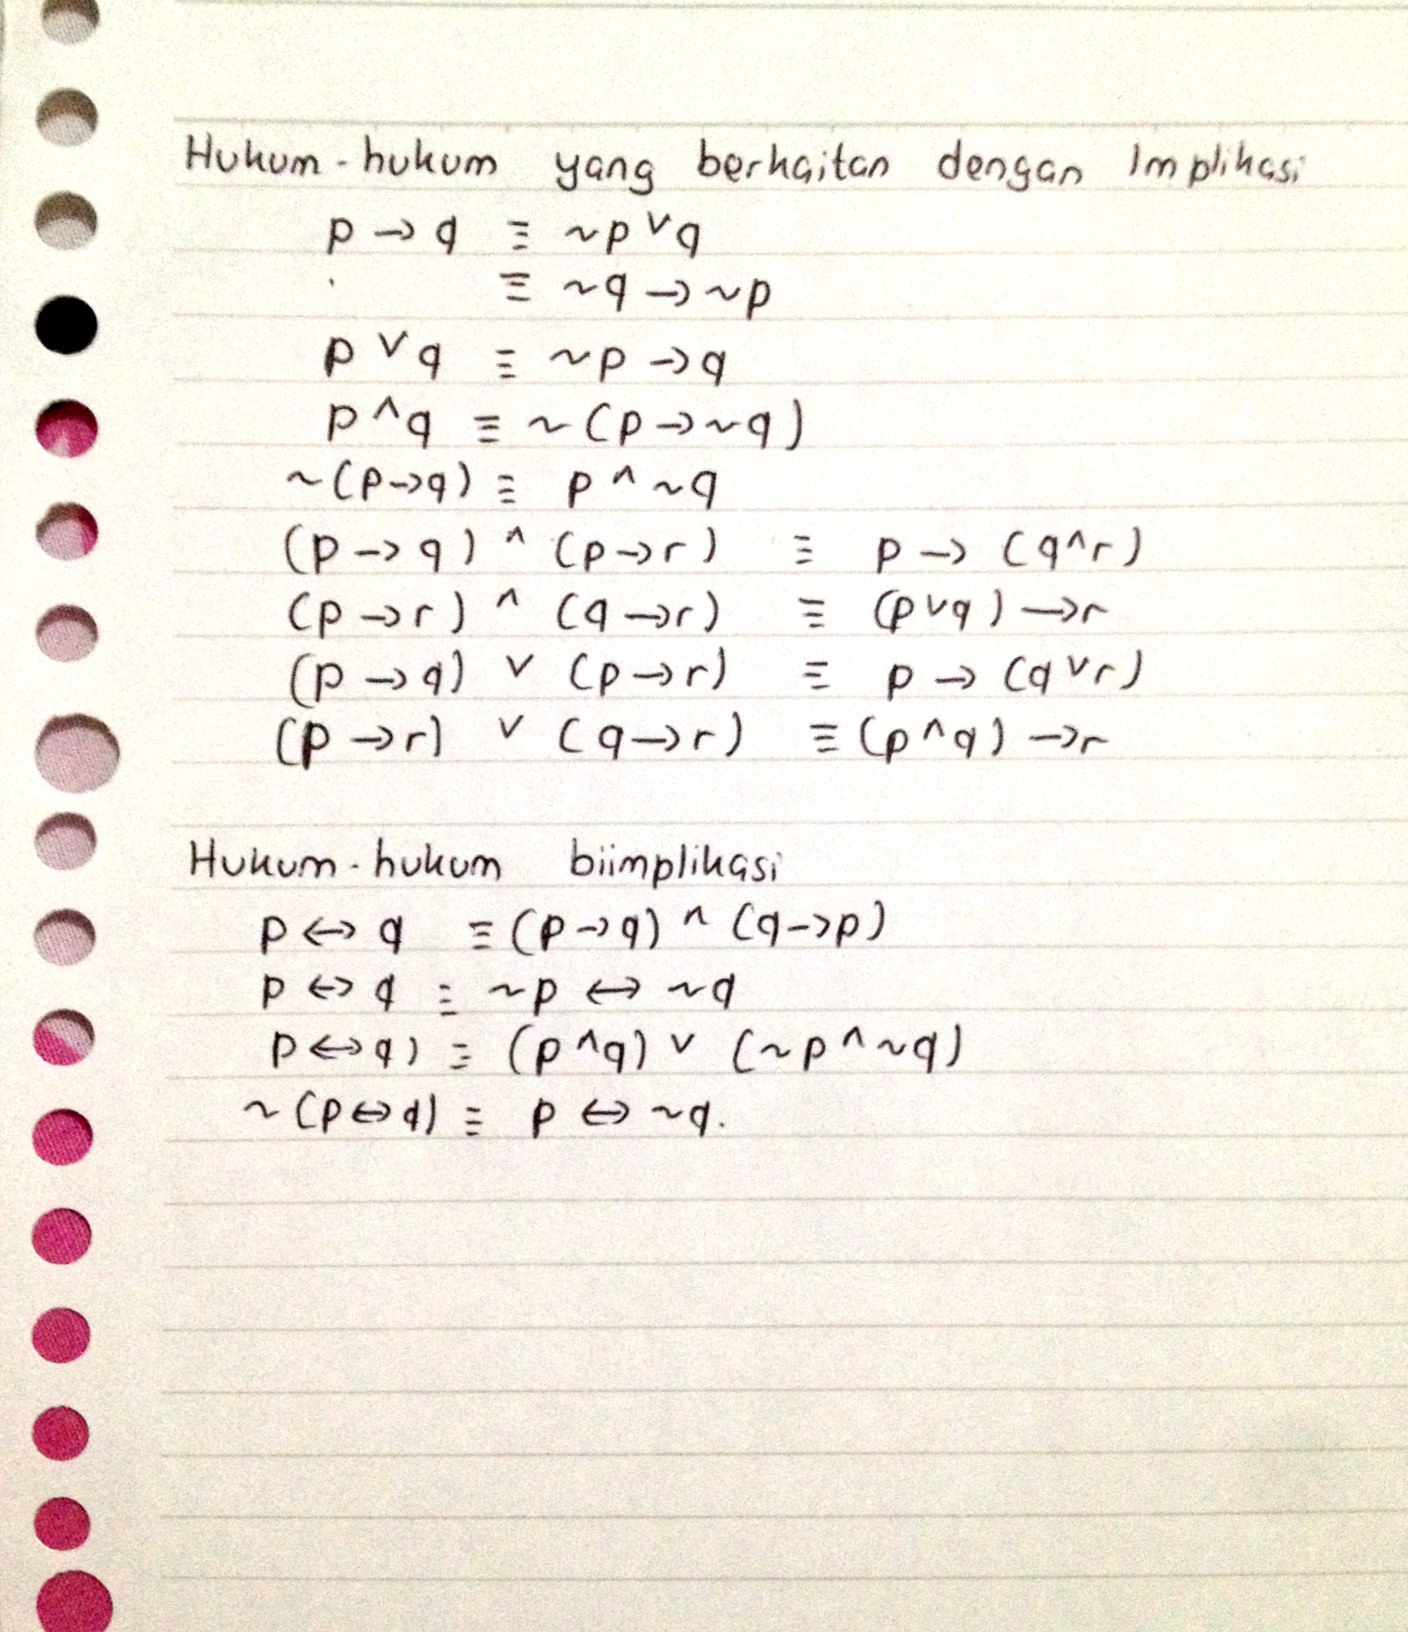 Hukum-hukum yang berkaitan dengan Implikasi
p → q ≡ ~p ∨ q
≡ ~q → ~p
p ∨ q ≡ ~p → q
p ∧ q ≡ ~(p → ~q)
~(p → q) ≡ p ∧ ~q
(p → q) ∧ (p → r) ≡ p → (q ∧ r)
(p → r) ∧ (q → r) ≡ (p ∨ q) → r
(p → q) ∨ (p → r) ≡ p → (q ∨ r)
(p → r) ∨ (q → r) ≡ (p ∧ q) → r
Hukum-hukum biimplikasi
p ↔ q ≡ (p → q) ∧ (q → p)
p ↔ q ≡ ~p ↔ ~q
p ↔ q) ≡ (p ∧ q) ∨ (~p ∧ ~q)
~(p ↔ q) ≡ p ↔ ~q.